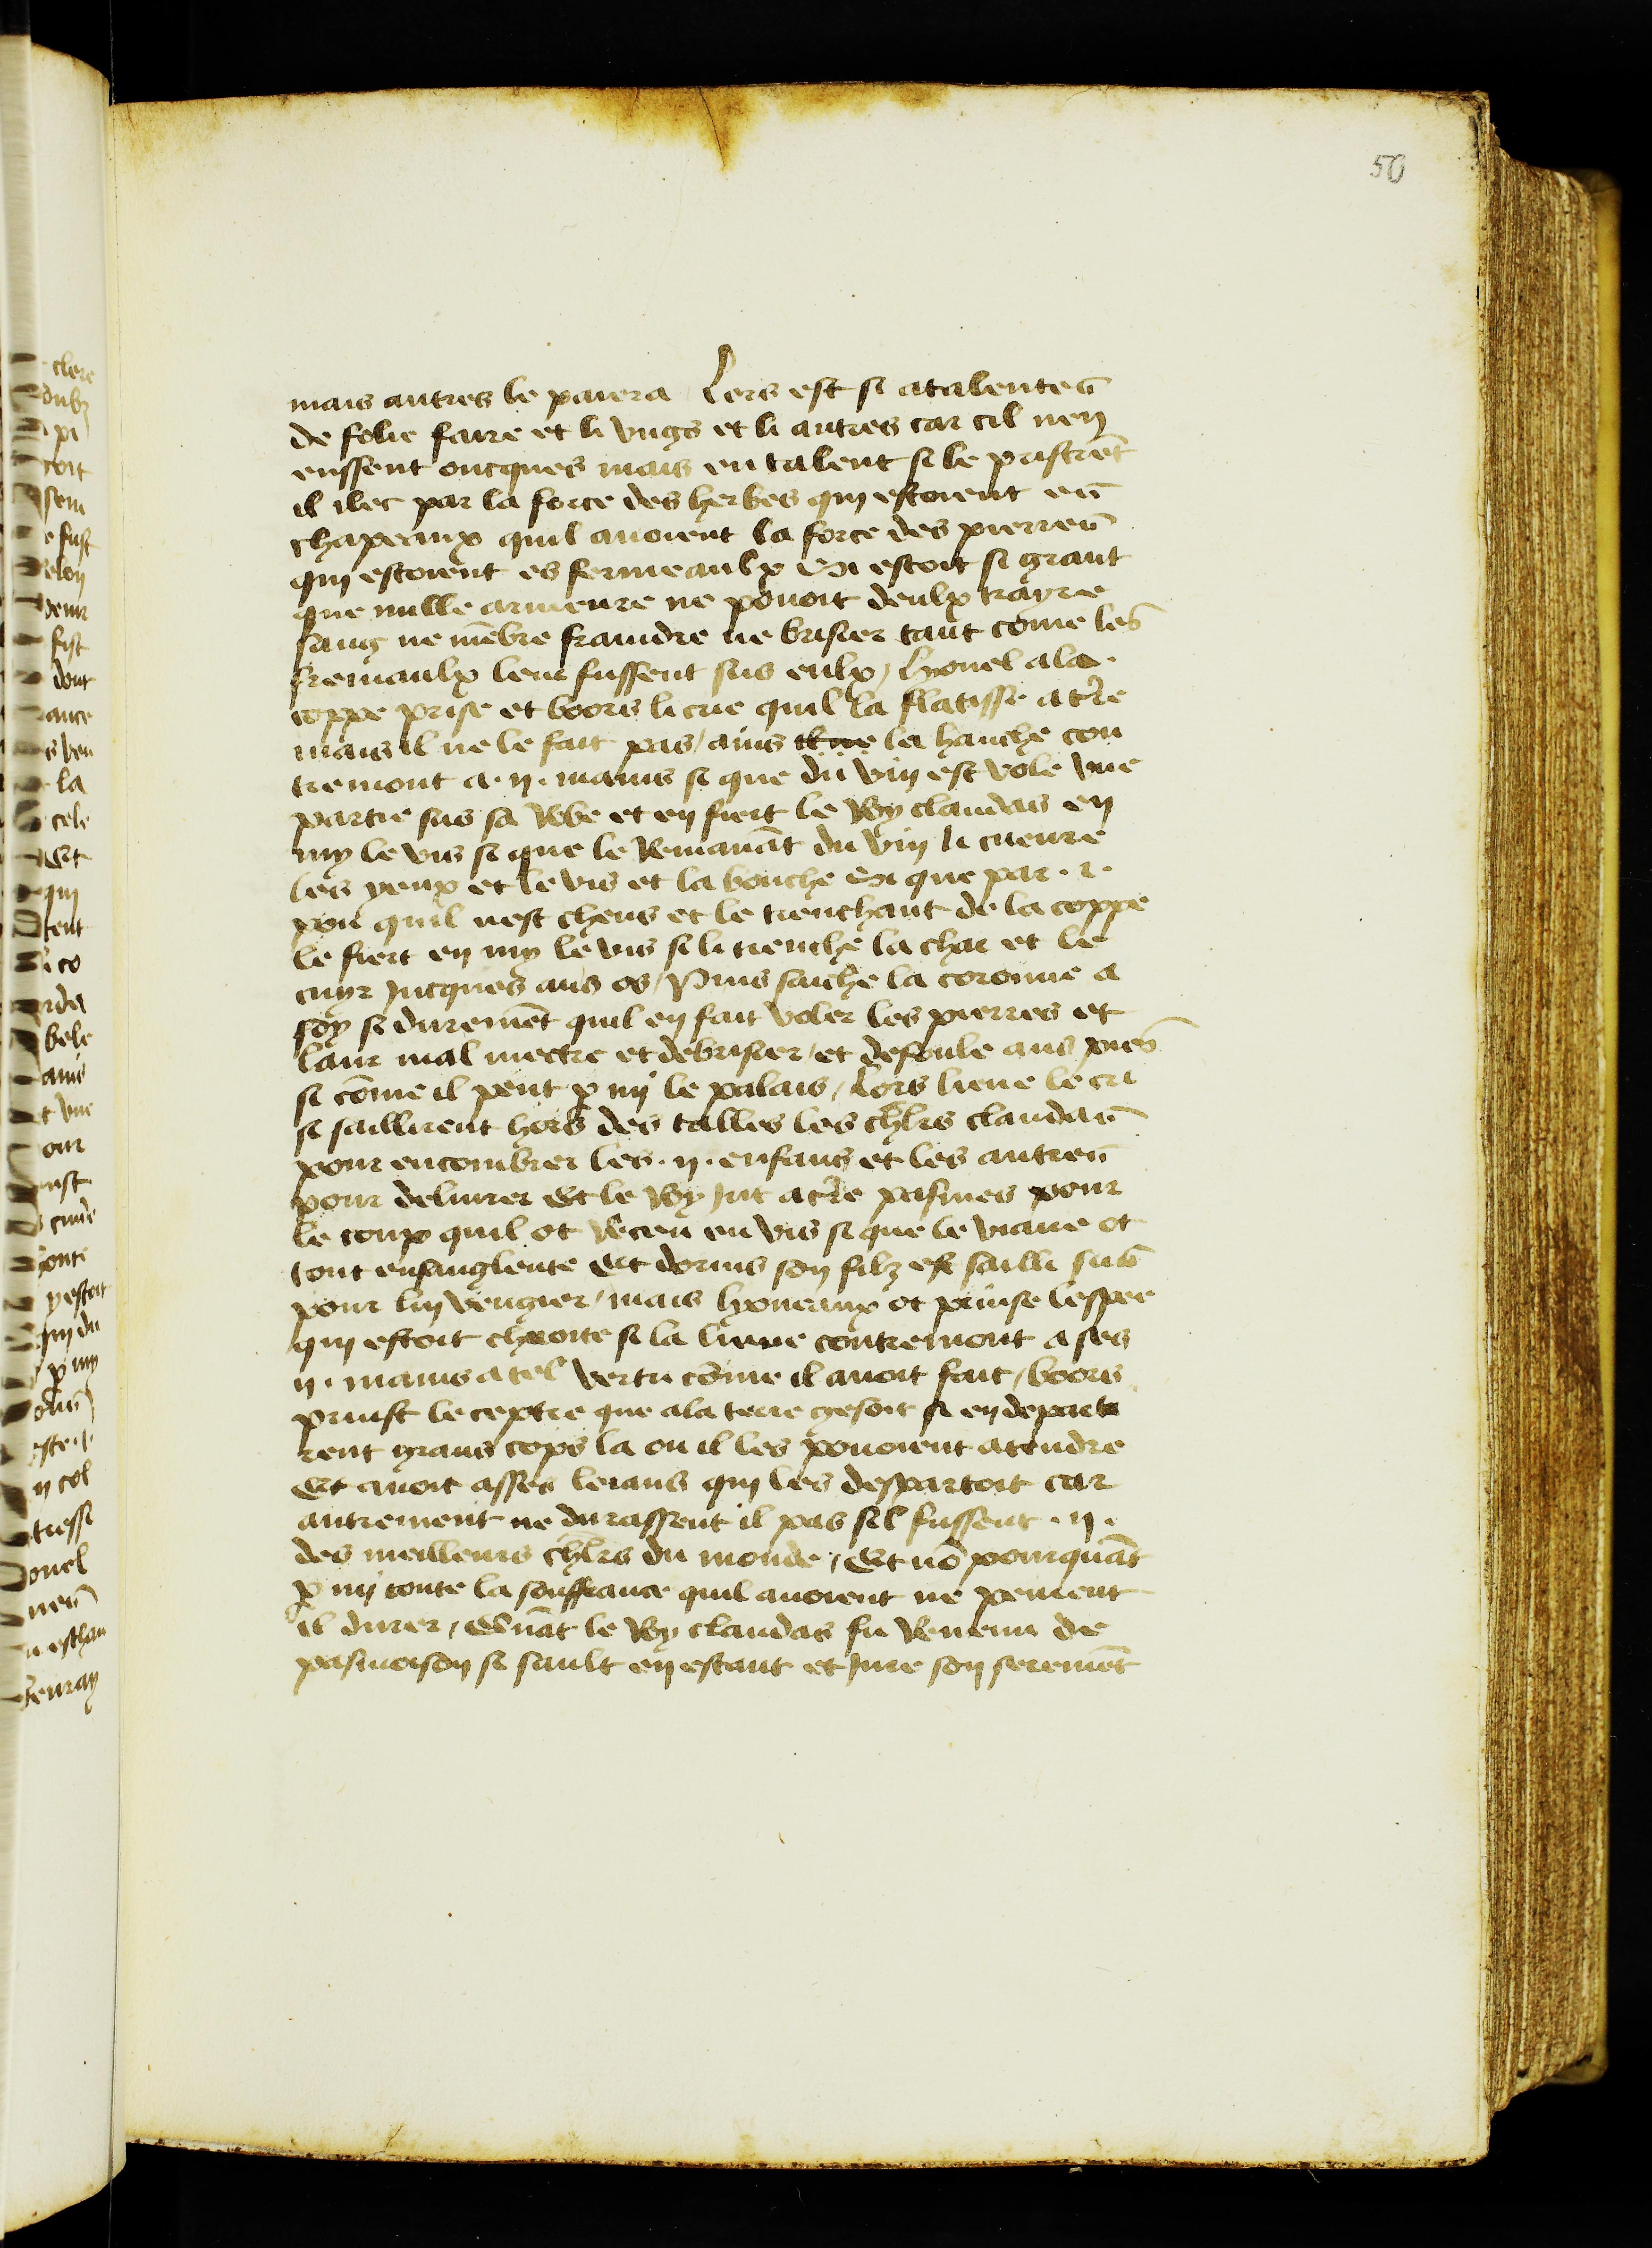 50
mais autres le paiera Lors est si atalentes
de folie faire et li vngs et li autres car cil nen
eussent oncques mais en talent si le pristrent̄
il ilec par la force des herbes qui estoient es
chapeaux quil auoient la force des pierres
qui estoient es fermeaulx Si estoit si grant
que nulle armeure ne pouoit deulx trayre
sang ne mēbre fraindre ne brisier tant cōme les
fremaulx leur fussent sus eulx / lyonel a la
coppe prise et boors li crie quil la flatisse a t̄re
mais il ne le fait pas / ains il ne la hauche con
tremont a . ii . mains si que du vin est vole vne
partie sus sa robe et en fiert le Roy claudas en
my le vis si que le Remanāt du vin li cueure
les yeux et le vis et la bouche Si que par . i .
pou quil nest cheus et le trenchant de la coppe
le fiert en my le vis si li trenche la char et le
cuyr jucques aus os / Puis saiche la coronne a
soy si duremēt quil en fait voler les pierres et
laur mal mectre et debrisier / et defoule aus pies
si cōme il peut p̄ my le palais / Lors lieue le cri
si saillirent hors des tables les ch̄lrs claudas
pour encombrer les . ii . enfans et les autres
pour deliurer Et le Roy jut a t̄re pasmes pour
le coup quil ot Receu en vis si que le viaire ot
tout ensanglente Et dorins son filz est sailli sus
pour luy vengier / mais lyoneaux ot prinse lespee
qui estoit cheoite si la lieue contremont a ses
ii . mains a tel vertu cōme il auoit fait / boors
prinst le ceptre que a la terre gesoit si en departi
rent grans cops la ou il les pouoient ataindre
Et auoit asses leians qui les despartoit car
autrement ne durassent il pas sil fussent . ii .
des meilleurs ch̄lrs du monde / Et nō pourquāt
p̄ my toute la souffrance quil auoient ne peuent
il durer / Quāt le Roy claudas fu Reuenu de
pasmoison si sault en estant et jure son seremēt